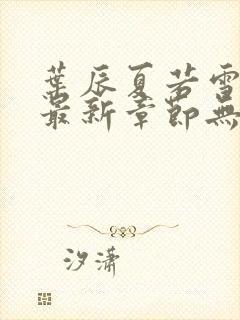 葉辰夏若雪
最新章節無
汐瀟